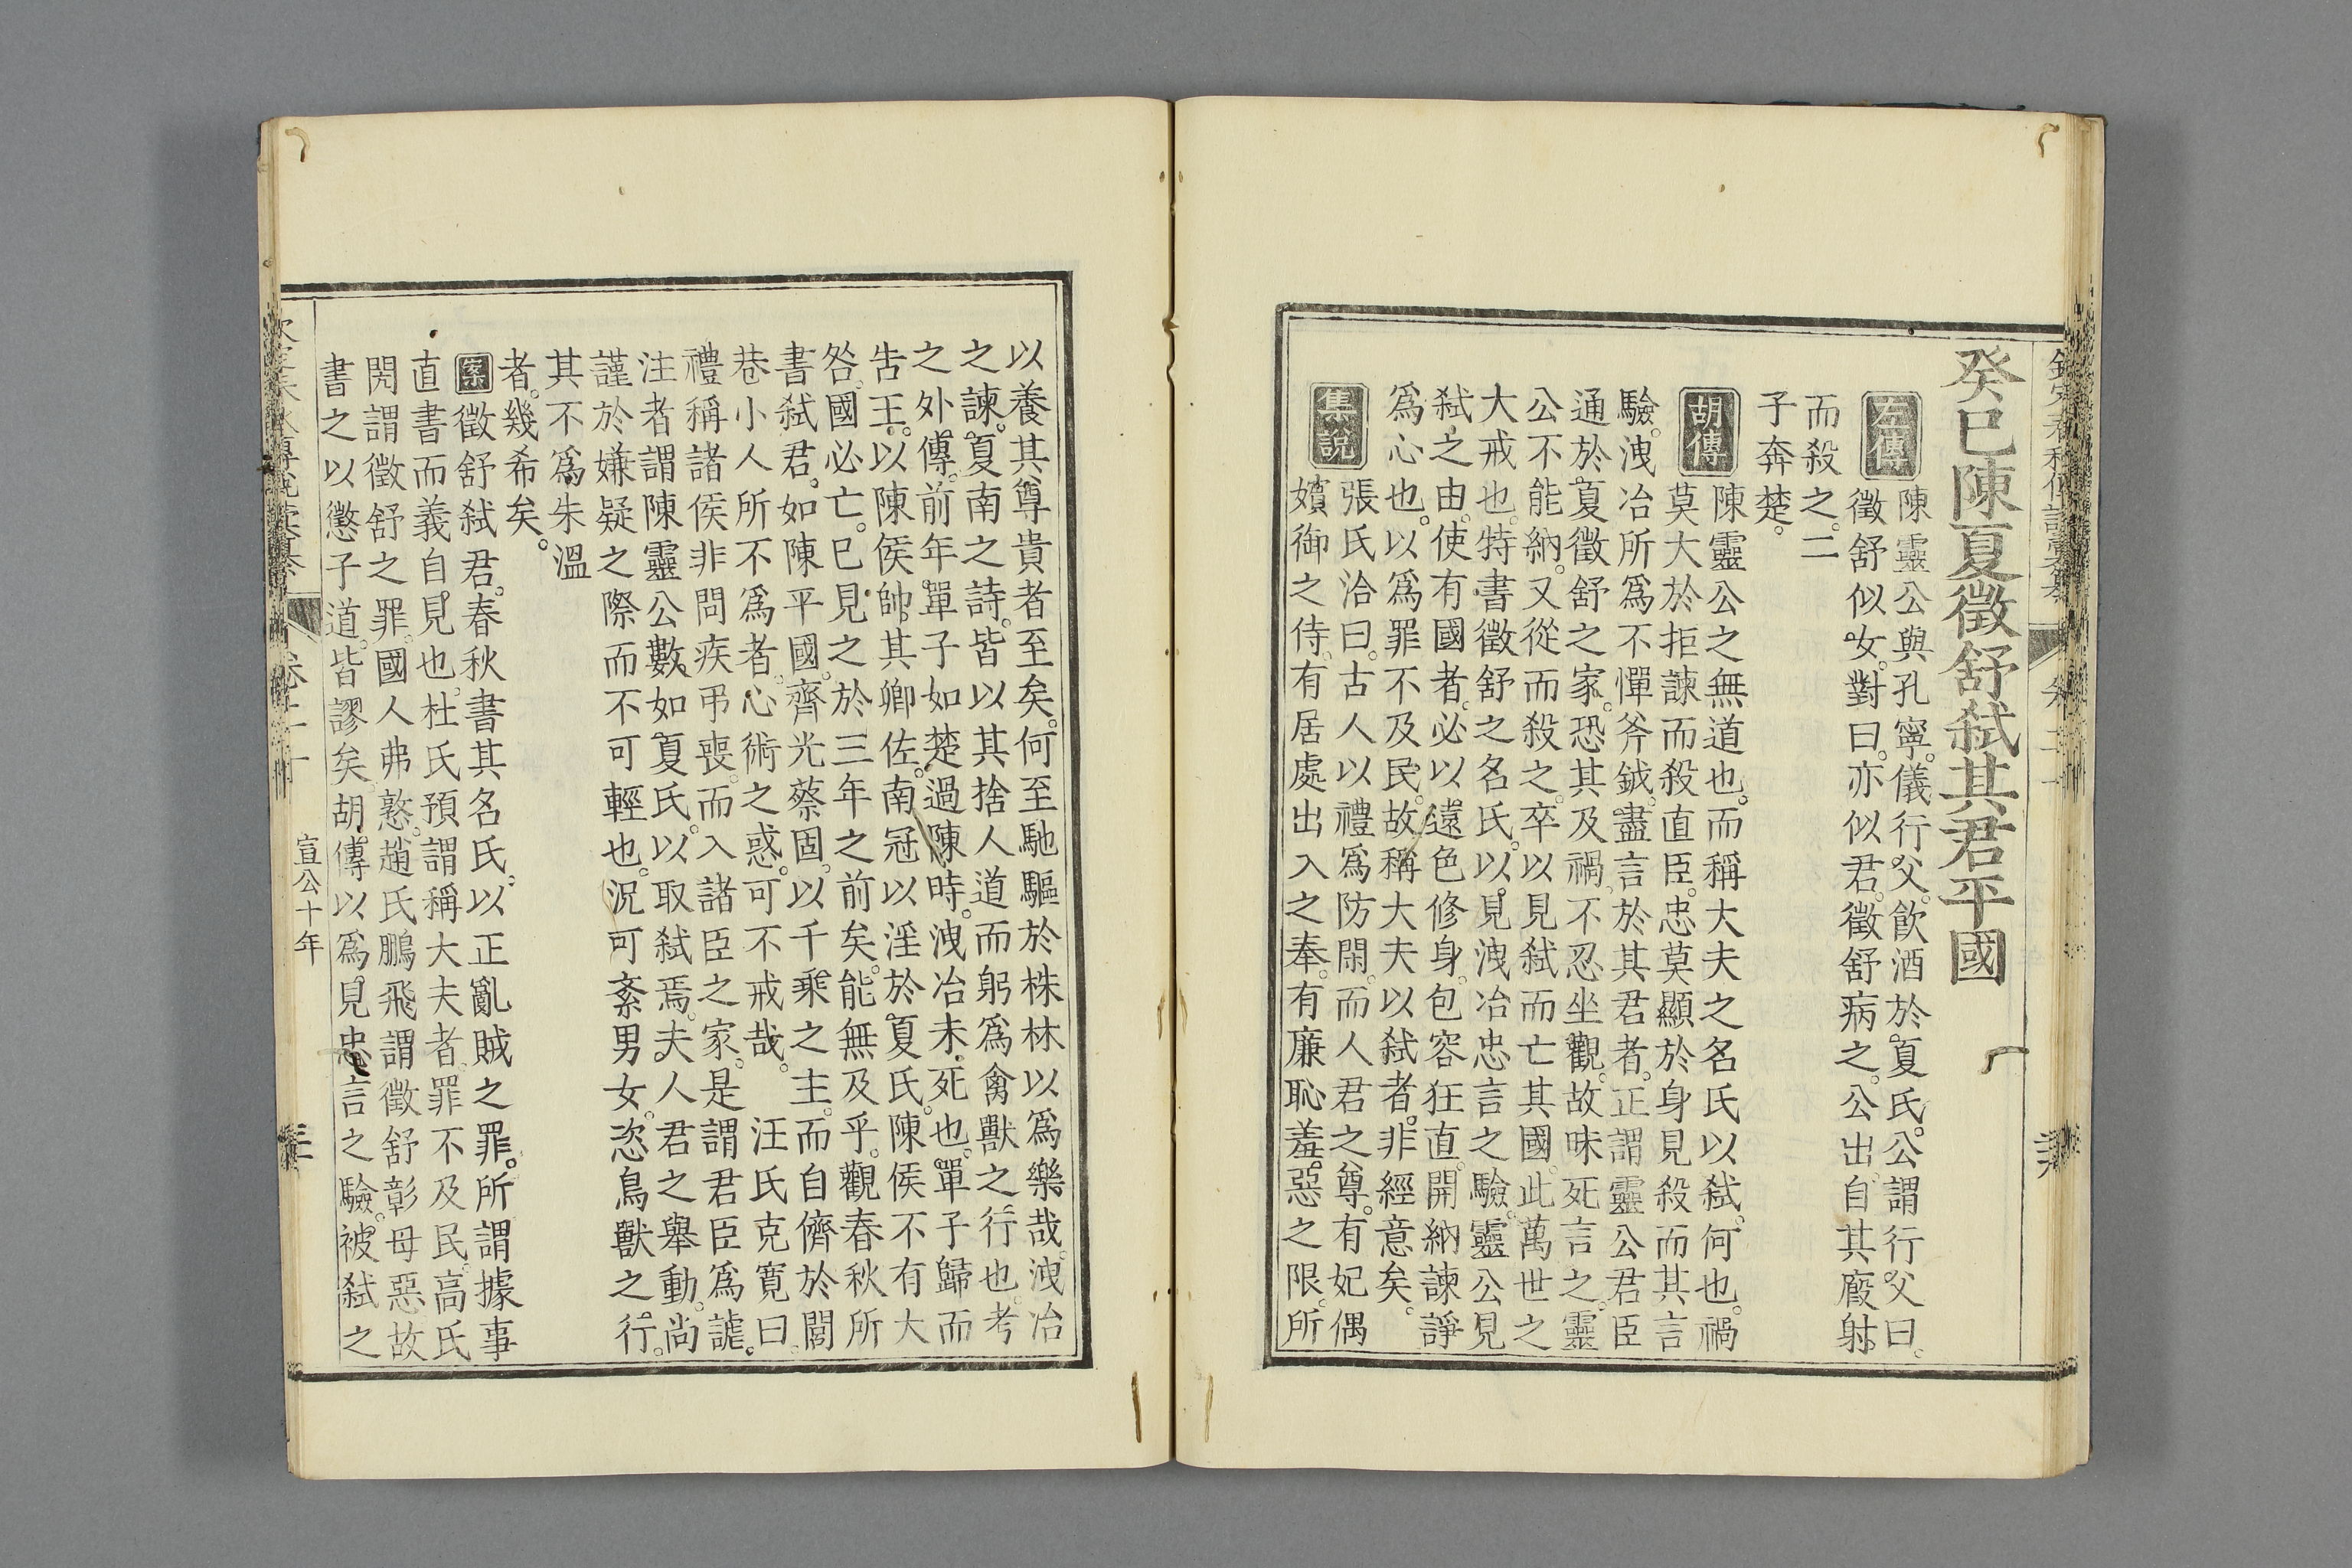 癸巳陳夏徵舒弑其君平國
左傳
陳靈公與孔寧。儀行父。飲酒於夏氏。公謂行父曰。
徵舒似女。對曰。亦似君。徵舒病之。公出。自其廄射
而殺之。二
子奔楚。
胡傳
陳靈公之無道也。而稱大夫之名氏以弑。何也。禍
莫大於拒諫而殺直臣。忠莫顯於身見殺而其言
驗。洩冶所爲不憚斧鉞。盡言於其君者。正謂靈公君臣
通於夏徵舒之家。恐其及禍。不忍坐觀。故昧死言之。靈
公不能納。又從而殺之。卒以見弑而亡其國。此萬世之
大戒也。特書徵舒之名氏。以見洩冶忠言之驗。靈公見
弑之由。使有國者。必以遠色修身。包容狂直。開納諫諍
爲心也。以爲罪不及民。故稱大夫以弑者。非經意矣。
集說
張氏洽曰。古人以禮爲防閑。而人君之尊。有妃偶
嬪御之侍。有居處出入之奉。有廉恥羞惡之限。所
以養其尊貴者至矣。何至馳驅於株林以爲樂哉。洩冶
之諫。夏南之詩。皆以其捨人道而躬爲禽獸之行也。考
之外傳。前年。單子如楚。過陳時。洩冶未死也。單子歸而
告王。以陳侯帥其卿佐。南冠以淫於夏氏。陳侯不有大
咎。國必亡。已見之於三年之前矣。能無及乎。觀春秋所
書弑君。如陳平國。齊光蔡固。以千乘之主。而自儕於閭
巷小人所不爲者。心術之惑。可不戒哉。 汪氏克寬曰。
禮稱諸侯非問疾弔喪。而入諸臣之家。是謂君臣爲謔。
注者謂陳靈公數如夏氏。以取弑焉。夫人君之舉動。尚
謹於嫌疑之際而不可輕也。況可紊男女。恣鳥獸之行。
其不爲朱溫
者。幾希矣。
案
徵舒弑君。春秋書其名氏。以正亂賊之罪。所謂據事
直書而義自見也。杜氏預謂稱大夫者。罪不及民。高氏
閌謂徵舒之罪。國人弗憝。趙氏鵬飛謂徵舒彰母惡。故
書之以懲子道。皆謬矣。胡傳以爲見忠言之驗。被弑之
宣公十年